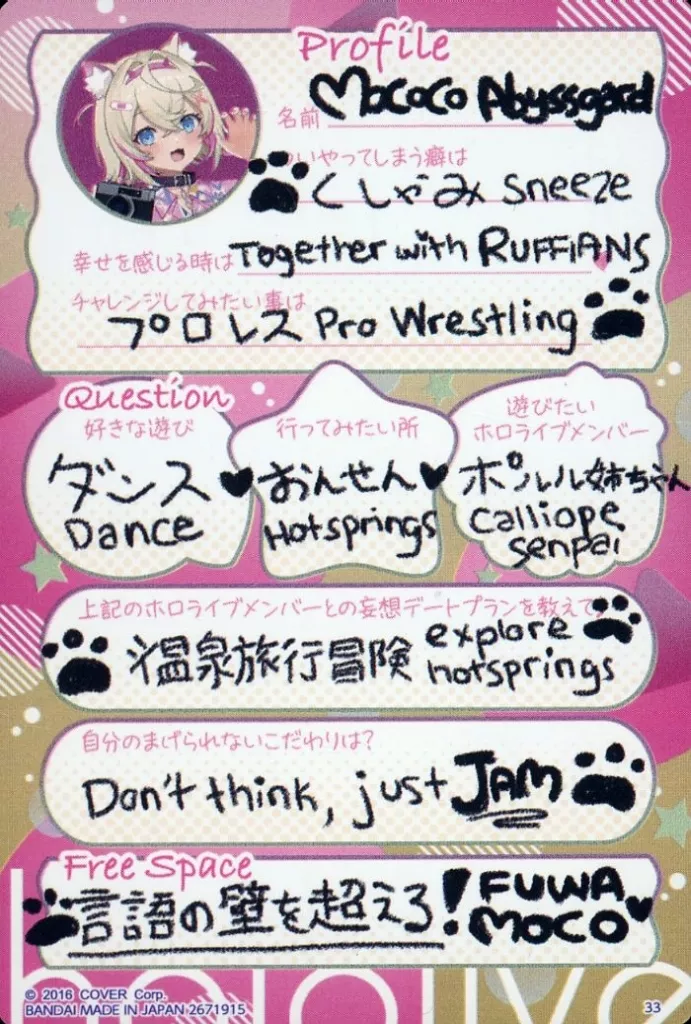 Profile
名前 Mococo Abyssgard
ついやってしまう癖は
くしゃみ sneeze
幸せを感じる時は Together with RUFFIANS
チャレンジしてみたい事は
プロレス Pro Wrestling
Question
好きな遊び
ダンス
Dance
行ってみたい所
おんせん
Hotsprings
遊びたい
ホロライブメンバー
ポルル姉ちゃん
Calliope
senpai
上記のホロライブメンバーとの妄想デートプランを教えて
温泉旅行冒険 explore
hotsprings
自分のまげられないこだわりは?
Don't think, just JAM
Free Space
言語の壁を超えろ! FUWA
MOCO
hololive
© 2016 COVER Corp.
BANDAI MADE IN JAPAN 2671915
33